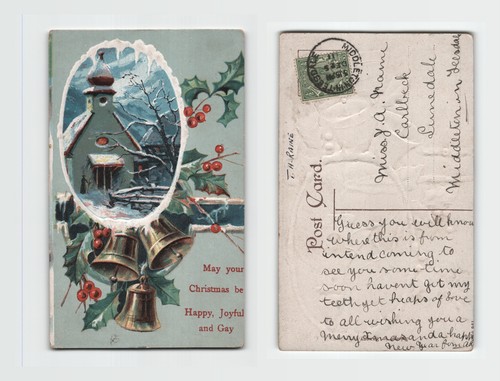 May your
Christmas be
Happy, Joyful
and Gay
MIDDLETON
T. H. RAINE
Post Card.
Miss J. A. Raine
Carlbeck
Lunedale
Middleton in Teesdale
Guess you will know
where this is from
intend coming to
see you some time
soon havent got my
teeth yet heaps of love
to all wishing you a
Merry Xmas and a happy
New Year from